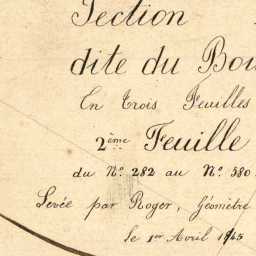 Section
dite du Bou
En trois Feuilles
2ème Feuille
du No. 282 au No. 580.
Levée par Roger, Géomètre
le 1er Avril 1843